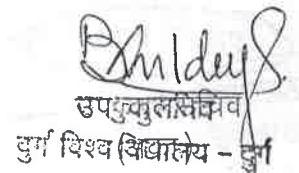 उपकुलसचिव
दुर्ग विश्वविद्यालय – दुर्ग